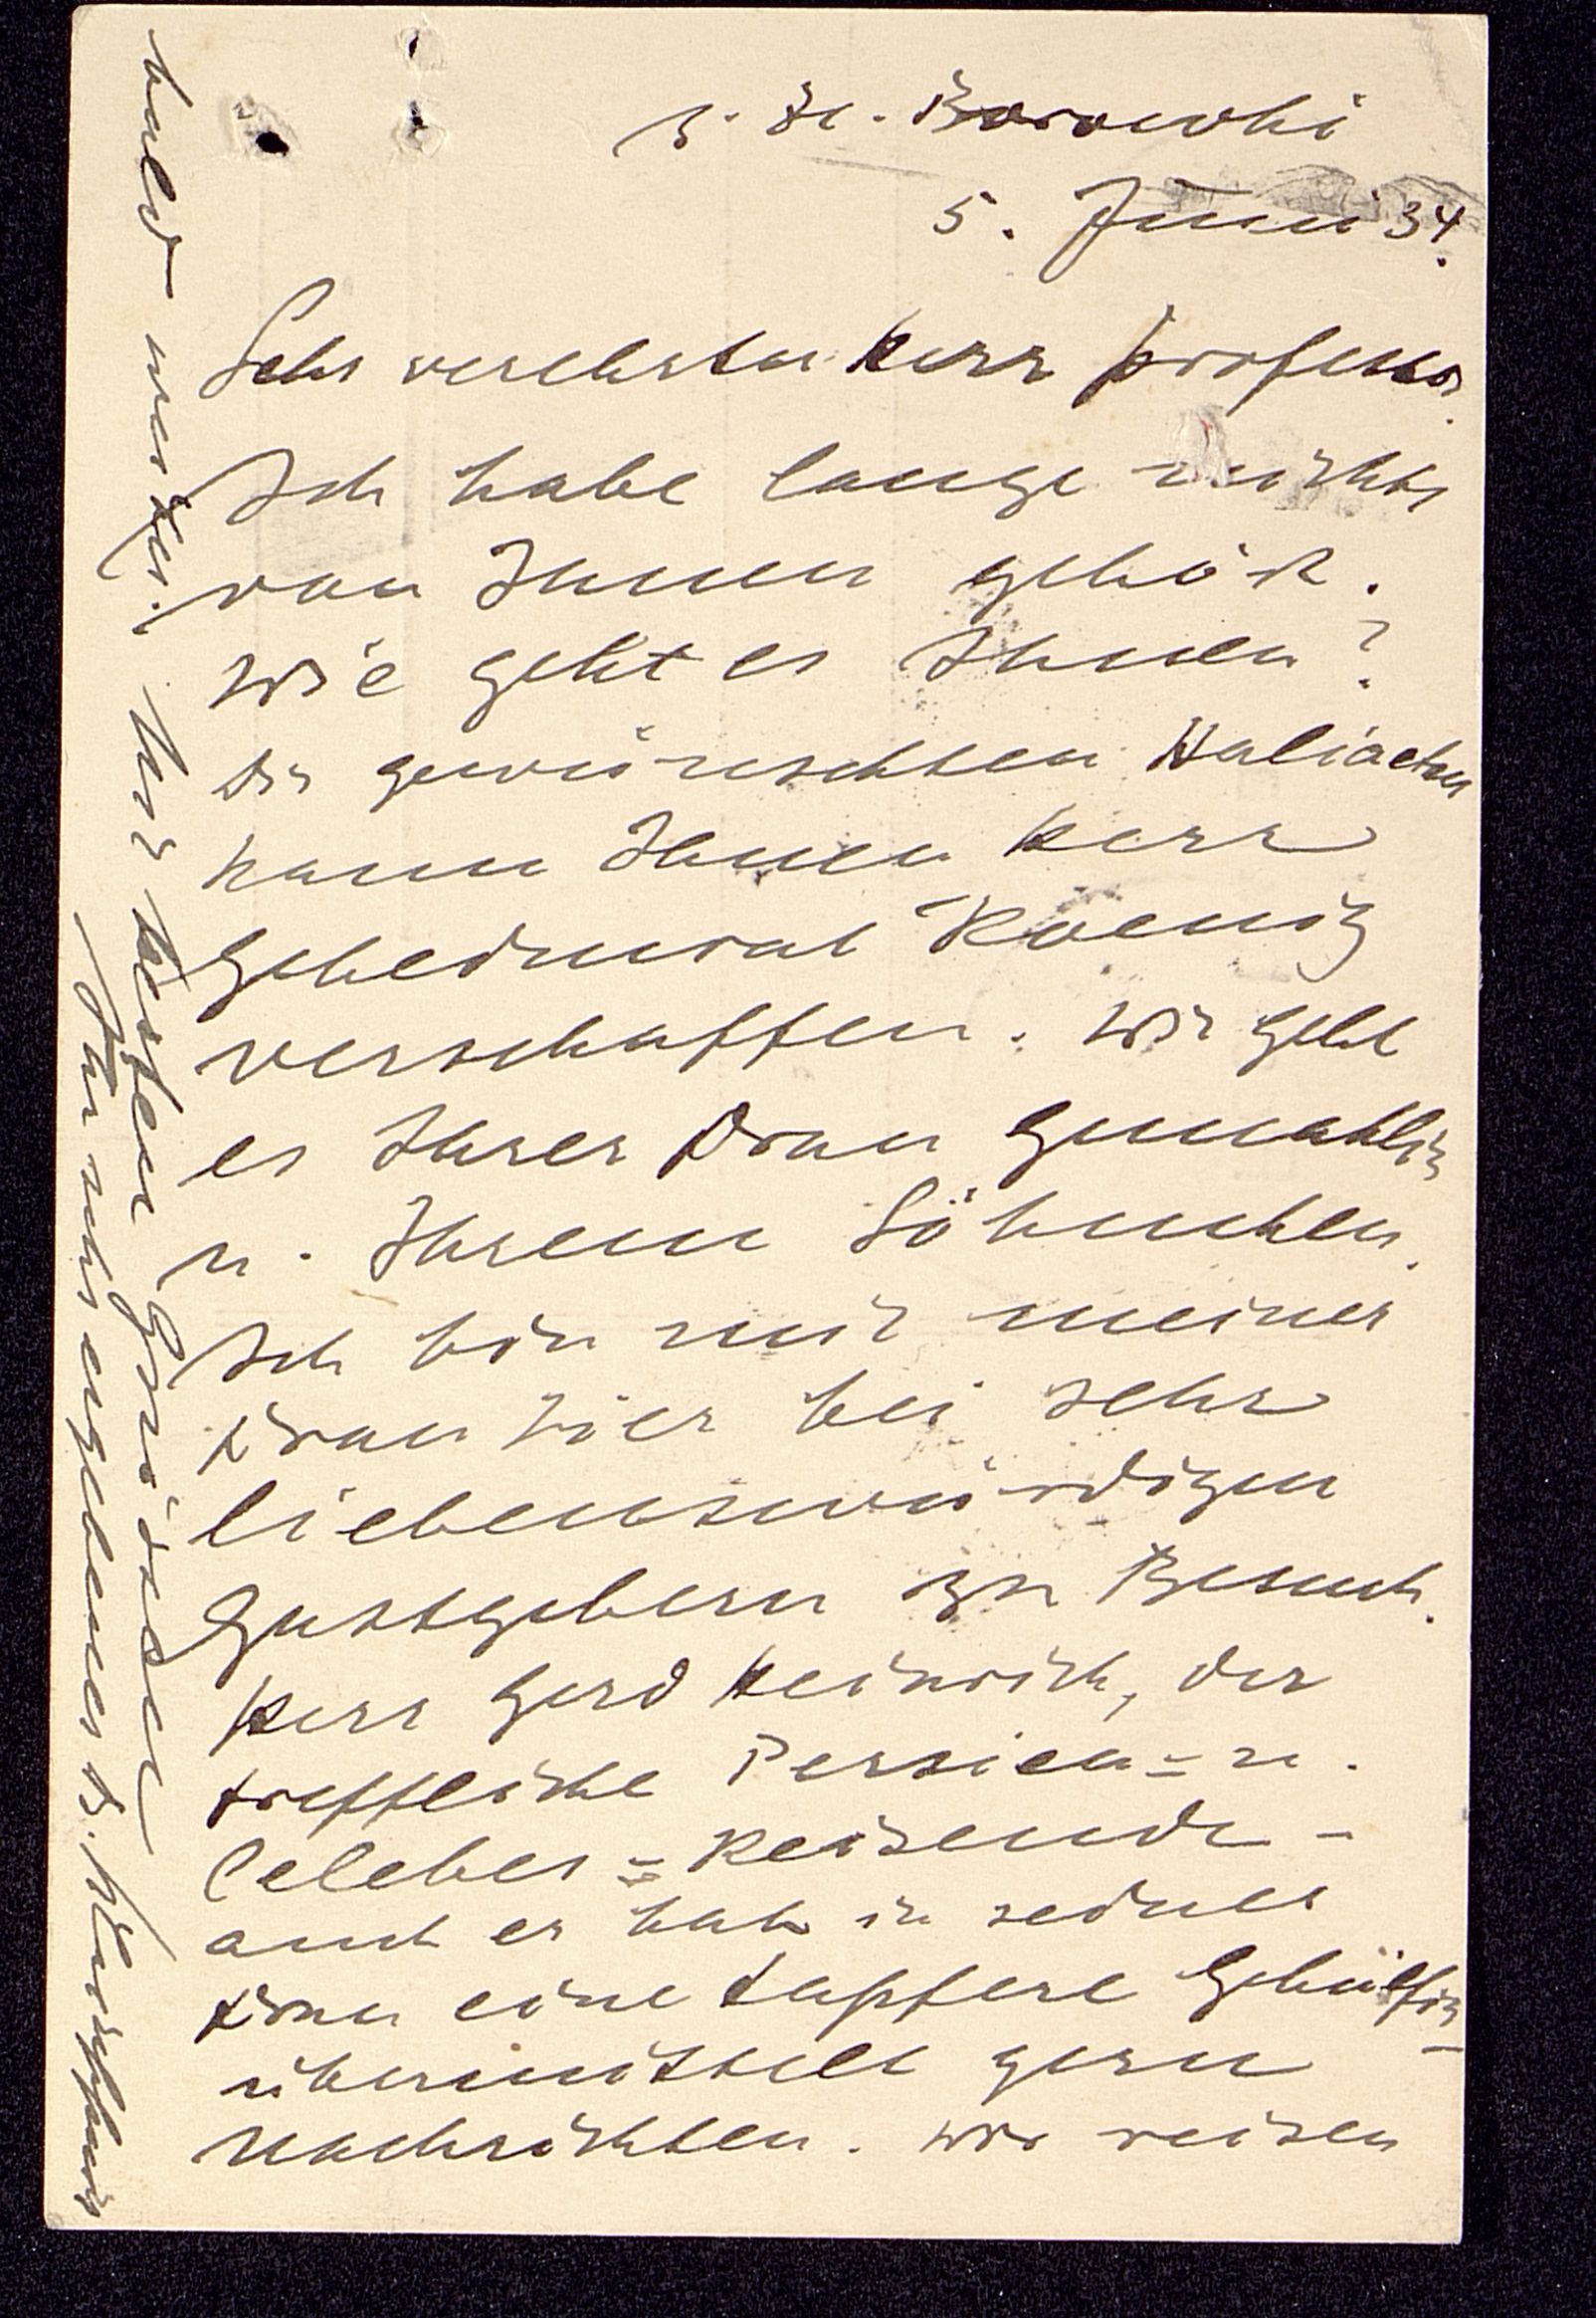 z. Zt. Borowki
5. Juni 34.
Sehr verehrter Herr Professor.
Ich habe lange nichts
von Ihnen gehört.
Wie geht es Ihnen?
Die gewünschten Haliaetus
kann Ihnen Herr
Geheimrat Koenig
verschaffen. Wie geht
es Ihrer Frau Gemahlin
u. Ihrem Söhnchen.
Ich bin mit meiner
Frau hier bei sehr
liebenswürdigen
Gastgebern zu Besuch.
Herr Gerd Heinrich, der
treffliche Persien= u.
Celebes=Reisende -
auch er hat in seiner
Frau eine tapfere Gehülfin -
übermittelt gern
Nachrichten. Wir reisen
bald weiter. Mit besten Grüssen
Ihr sehr ergebener O. Kleinschmidt